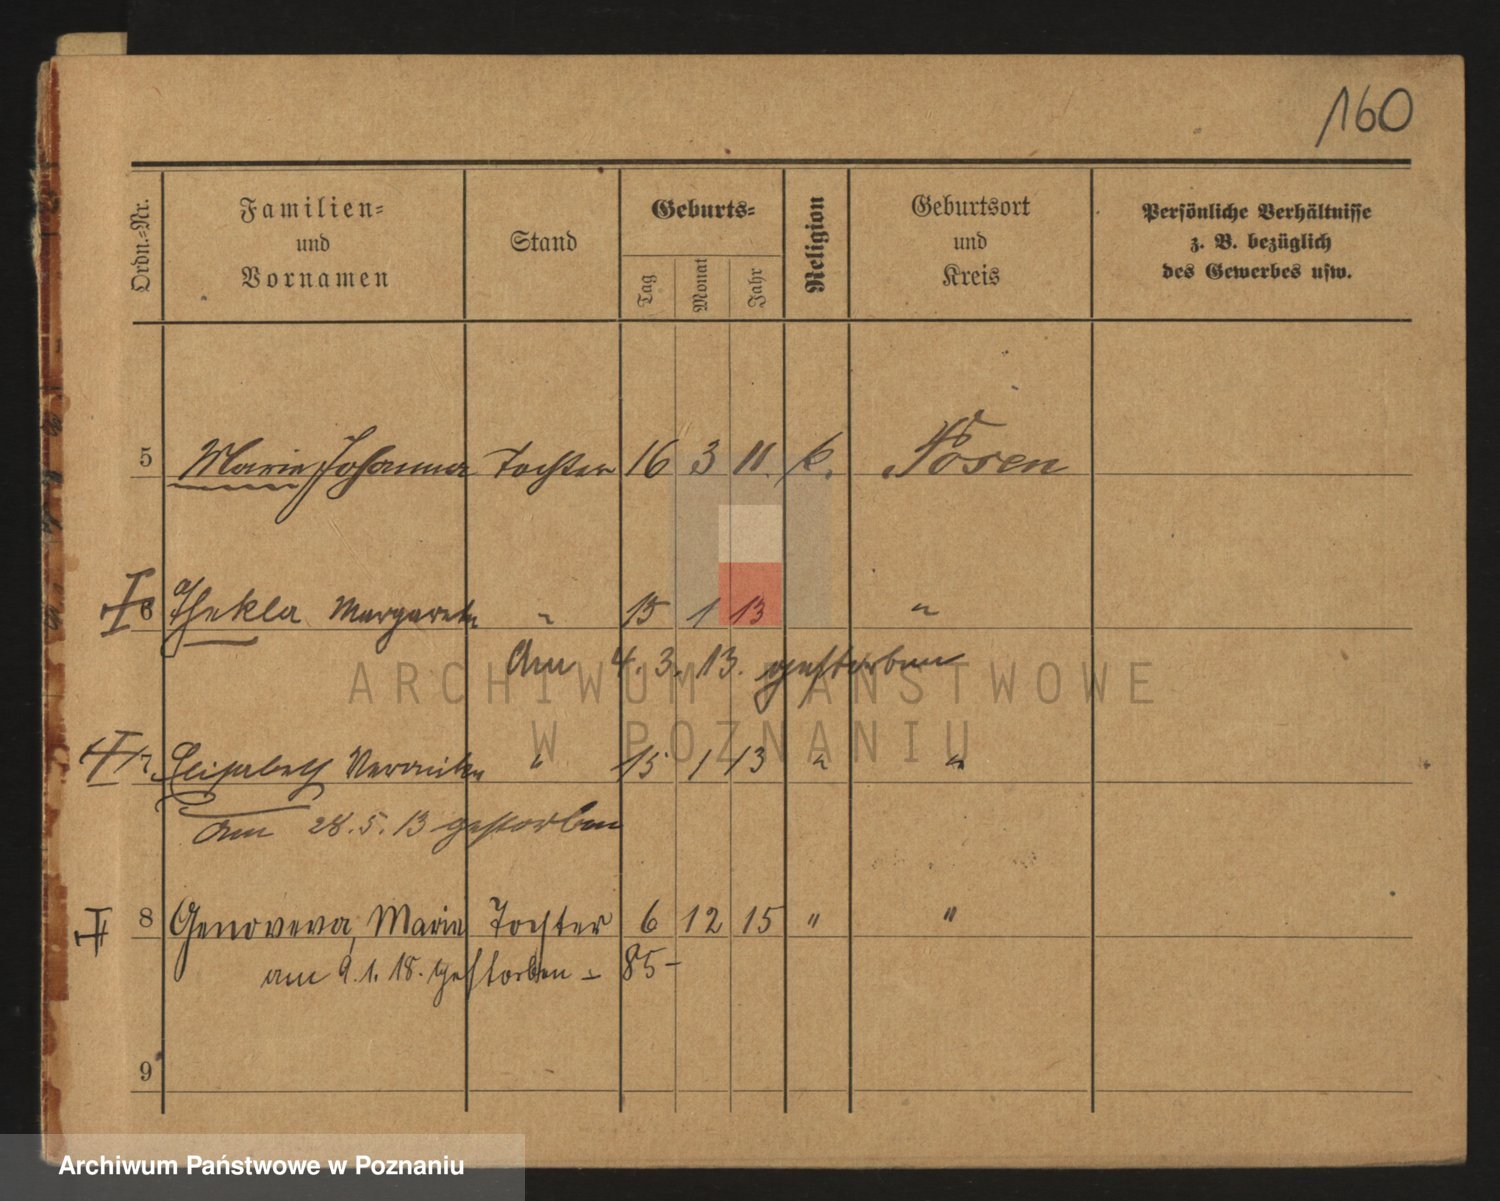 160
Ordn.-Nr.
Familien-
und
Vornamen
Stand
Geburts-
Tag
Monat
Jahr
Religion
Geburtsort
und
Kreis
Persönliche Verhältnisse
z. B. bezüglich
des Gewerbes usw.
5 Marie Johanna Tochter 16 3 11. k. Posen
6 Thekla Margarete " 15 1 13 "
Am 4. 3. 13. gestorben
ARCHIWUM PAŃSTWOWE
W POZNANIU
7 Elisabeth Veronika " 15 1 13 " "
Am 28. 5. 13 gestorben
8 Genoveva, Marie Tochter 6 12 15 " "
am 9. 1. 18. gestorben - 85 -
9
Archiwum Państwowe w Poznaniu